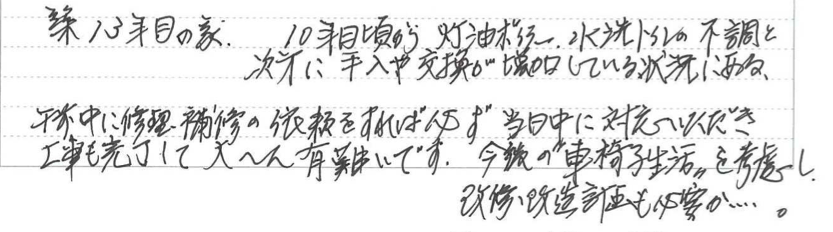 築13年目の家. 10年目頃から灯油ボイラー.水洗トイレの不調と
次第に手入や交換が増加している状況にある、
午前中に修理.補修の依頼をすれば必ず当日中に対応いただき
工事も完了して大へん有難いです. 今後の"車椅子生活"を考慮し、
改修、改造計画も必要か……。